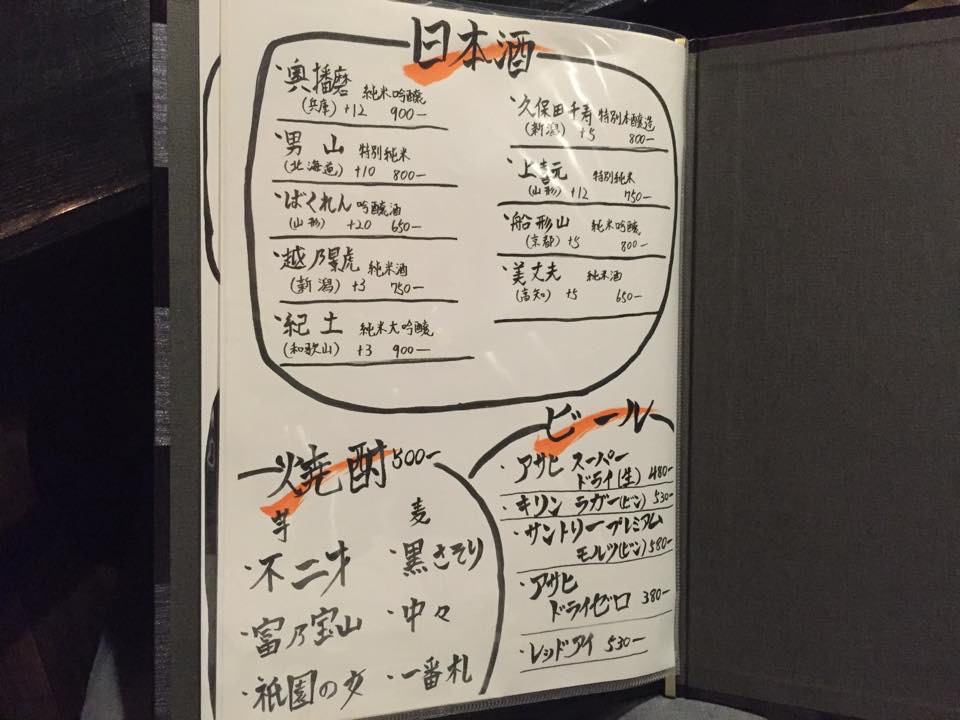 日本酒
・奥播磨 純米吟醸
(兵庫) +12 900-
・男山 特別純米
(北海道) +10 800-
・ばくれん 吟醸酒
(山形) +20 650-
・越乃景虎 純米酒
(新潟) +3 750-
・紀土 純米大吟醸
(和歌山) +3 900-
・久保田千寿 特別本醸造
(新潟) +5 800-
・上喜元 特別純米
(山形) +12 750-
・船形山 純米吟醸
(京都) +5 800-
・美丈夫 純米酒
(高知) +5 650-
焼酎 500-
芋
・不二才
・富乃宝山
・祇園の女
麦
・黒さそり
・中々
・一番札
ビール
・アサヒ スーパー
ドライ(生) 480-
・キリン ラガー(ビン) 530-
・サントリープレミアム
モルツ(ビン) 580-
・アサヒ
ドライゼロ 380-
・レッドアイ 530-